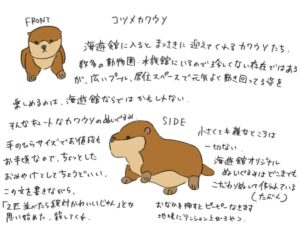 FRONT
コツメカワウソ
海遊館に入ると まっさきに 迎えてくれる カワウソたち。
数多の動物園・水族館にいるので珍しくない存在ではある
が、広いプール、居住スペースで元気よく動き回ってる姿を
楽しめるのは、海遊館ならでは かもしれない。
そんなキュートなカワウソのぬいぐるみ
手のひらサイズでお値段も
お手頃なので、ちょっとした
おみやげとしてちょうどいい。
この文を書きながら、
「2匹並べたら絶対かわいいじゃん」と
思い始めた。許してくれ
SIDE
小さくても雑なところは
一切ない。
海遊館オリジナル
ぬいぐるみはどこまでも
こだわりぬいて作られている
(たぶん)
おなかを押すとピーピーなきます
地味にテンション上がるやつ